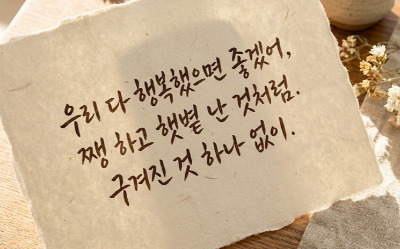 우리 다 행복했으면 좋겠어,
쨍 하고 햇볕 난 것처럼.
구겨진 것 하나 없이.